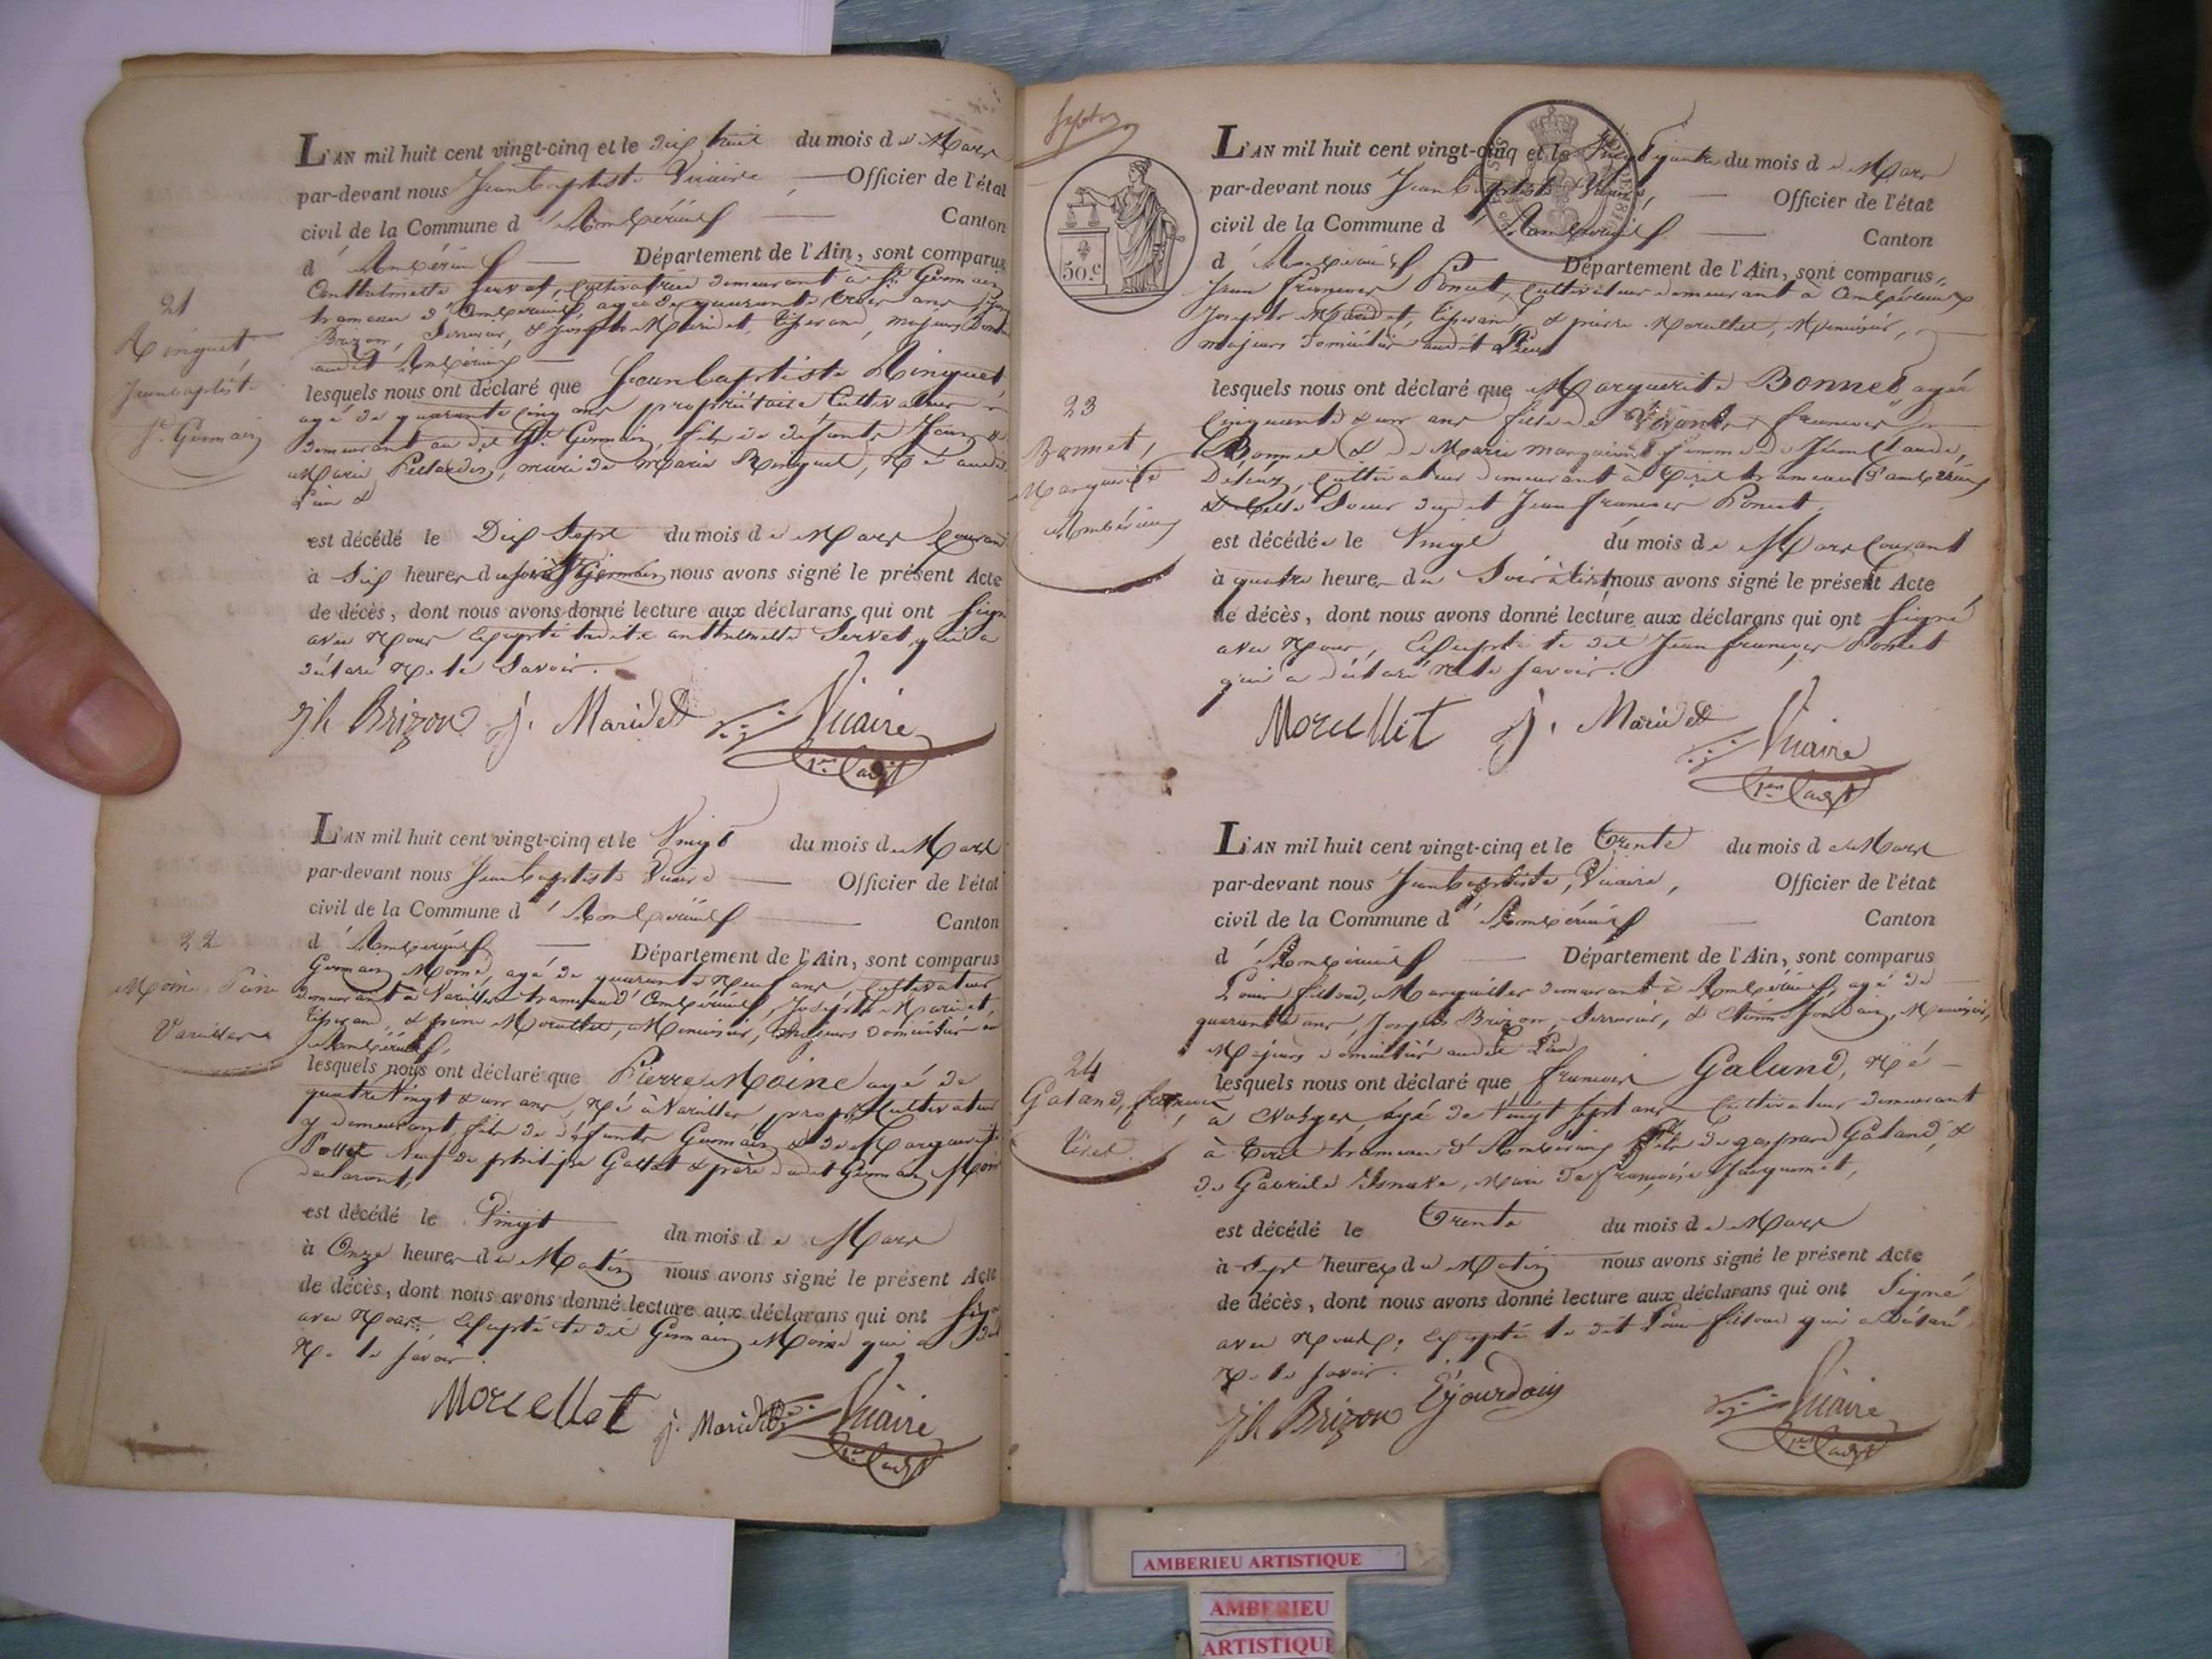 L'AN mil huit cent vingt-cinq et le dix huit du mois de Mars
par-devant nous Jean baptiste Vicaire Officier de l'état
civil de la Commune d'Ambérieux Canton
d'Ambérieux Département de l'Ain, sont comparus
Anthelmette Servet, Cultivatrice demeurant à St. Germain
hameau d'Ambérieux, agée de quarante trois ans,
Brizon, Serrurier, & Joseph Maridet, tisserand, majeurs
audit Ambérieux
21
Ringuet
Jean baptiste
St. Germain
lesquels nous ont déclaré que Jean baptiste Ringuet
agé de quarante cinq ans propriétaire Cultivateur
demeurant au dit St. Germain, fils de défunts Jean &
Marie, mari de Marie Ringuet, Né audit
Lieu &
est décédé le Dix Sept du mois de Mars Courant
à Six heures du soir à St. Germain nous avons signé le présent Acte
de décès, dont nous avons donné lecture aux déclarans qui ont Signé
avec Nous Excepté ladite anthelmette Servet qui a
déclaré Ne le Savoir.
Jh Brizon j. Maridet Vicaire
1er adjt
L'AN mil huit cent vingt-cinq et le Vingt du mois de Mars
par-devant nous Jean baptiste Vicaire Officier de l'état
civil de la Commune d'Ambérieux Canton
d'Ambérieux Département de l'Ain, sont comparus
Germain Moine, agé de quarante Neuf ans, Cultivateur
demeurant à Vareilles hameau d'Ambérieux, Joseph Maridet,
tisserand, & pierre Morcellet, Menuisier, Majeurs Domiciliés à
Ambérieux,
22
Moine Pierre
Vareilles
lesquels nous ont déclaré que Pierre Moine agé de
quatre Vingt & un ans, Né à Vareilles, propre Cultivateur
y demeurant, fils de défunts Germain & de Marguerite
Veuf de philippe & père dudit Germain Moine
declarant,
est décédé le Vingt du mois de Mars
à Onze heures du Matin nous avons signé le présent Acte
de décès, dont nous avons donné lecture aux déclarans qui ont Signé
avec Nous, Excepté le dit Germain Moine qui a
Ne le Savoir.
Morcellet j. Maridet Vicaire
1er adjt
L'AN mil huit cent vingt-cinq et le Vingt quatre du mois de Mars
par-devant nous Jean baptiste Vicaire, Officier de l'état
civil de la Commune d'Ambérieux Canton
d'Ambérieux Département de l'Ain, sont comparus
50.c
Jean françois Poncet, Cultivateur demeurant à Ambérieux
Joseph Maridet, tisserand, & pierre Morcellet, Menuisier,
majeurs domiciliés audit Lieu
23
Bonnet,
Marguerite
Ambérieux
lesquels nous ont déclaré que Marguerite Bonnet, agée
Cinquante & un ans fille de françois
Bonnet & de Marie femme de Jean Claude,
Cultivateur demeurant à Tiret hameau d'ambérieux
& Belle Soeur dudit Jean françois Poncet,
est décédée le Vingt du mois de Mars Courant
à quatre heures du Soir à tiret nous avons signé le présent Acte
de décès, dont nous avons donné lecture aux déclarans qui ont Signé
avec Nous, Excepté le dit Jean françois Poncet
qui a déclaré Ne le Savoir.
Morcellet j. Maridet Vicaire
1er adjt
L'AN mil huit cent vingt-cinq et le Trente du mois de Mars
par-devant nous Jean baptiste, Vicaire, Officier de l'état
civil de la Commune d'Ambérieux Canton
d'Ambérieux Département de l'Ain, sont comparus
Louis, Marguillier demeurant à Ambérieux, agé de
quarante ans, Joseph Brizon, Serrurier, & Jourdain, Menuisier,
Majeurs domiciliés audit Lieu
24
Galand, françois
Tiret.
lesquels nous ont déclaré que françois Galand, Né
à, agé de Vingt Sept ans Cultivateur demeurant
à Tiret hameau d'Ambérieux fils de gaspard Galand, &
de Gabriele, Mari de françoise Jacquemet,
est décédé le Trente du mois de Mars
à Sept heures du Matin nous avons signé le présent Acte
de décès, dont nous avons donné lecture aux déclarans qui ont Signé
avec Nous, Excepté le dit Louis qui a Déclaré
Ne le Savoir.
Jh Brizon E jourdain Vicaire
1er adjt
AMBERIEU ARTISTIQUE
AMBERIEU
ARTISTIQUE